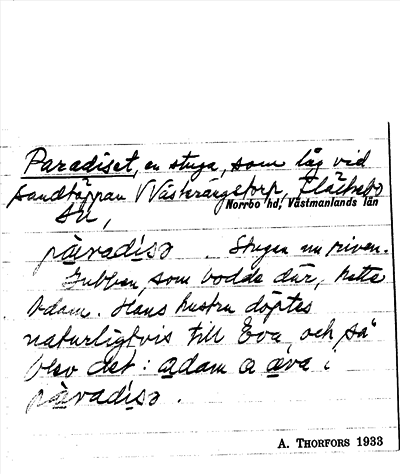 Paradiset, en stuga, som låg vid
sandtäppan V Västerängstorp, Fläckebo
Norrbo hd, Västmanlands län
sn,
pàradìsə . Stugan nu riven.
Gubben, som bodde där, hette
Adam. Hans hustru döptes
naturligtvis till Eva, och så
blev det: adam o äva i
pàradìsə .
A. THORFORS 1933